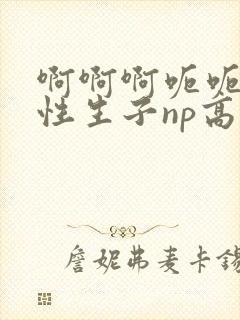 啊啊啊呃呃
性生子np高
詹妮弗麦卡锡